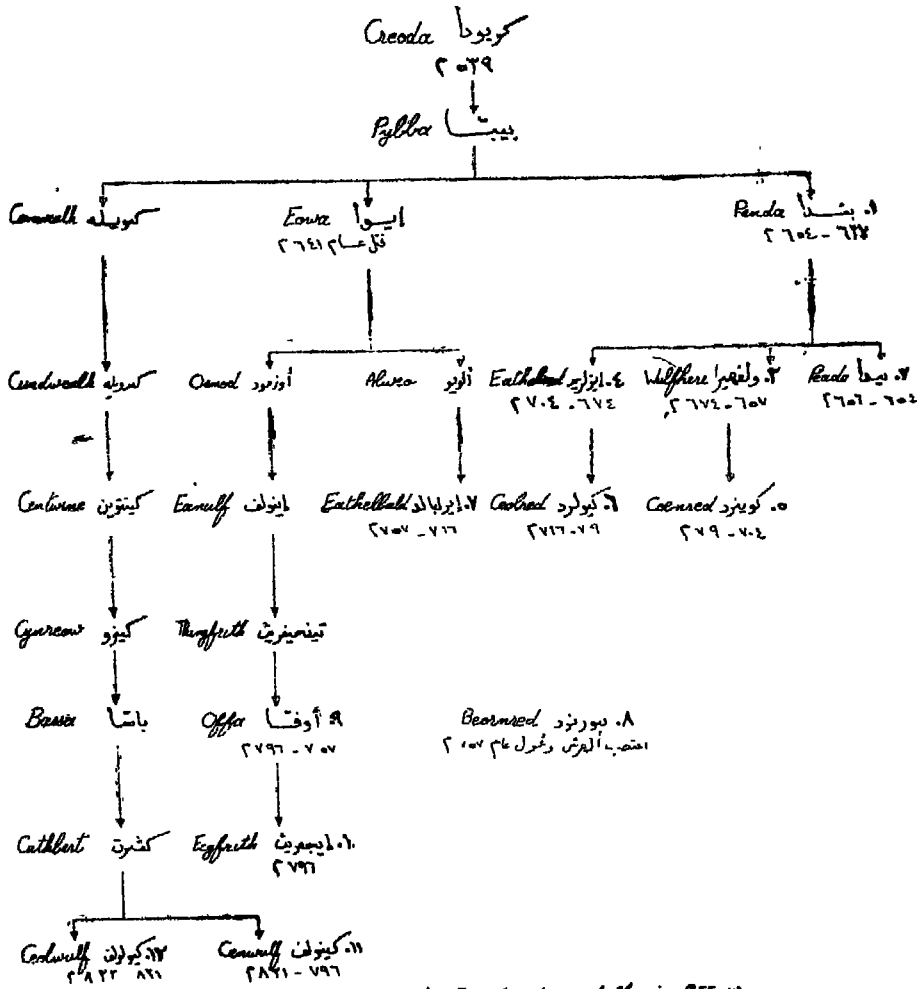 Creoda كويودا
٥٣٩م
Pybba بيبتا
Conwealh كويله
Eowa إيوا
قتل عام ٦٤١م
Penda ١. بندا
٦٥٤م
Cundwealh كدويله
Osmod أوزمود
Alweo ألويو
٤. إيزلريد
٦٧٤ - ٧٠٤م
Wulfhere ٣. ولفهيرا
٦٥٧ - ٦٧٤م
Peada ٢. بيدا
٦٥٤ - ٦٥٦م
Centwine كينتوين
Eanulf إينولف
Eathelbald ٧. إيزلبالد
٧١٦ - ٧٥٧م
Ceolred ٦. كيولرد
٧٠٩ - ٧١٦م
Coenred ٥. كوينرد
٧٠٤ - ٧٠٩م
Cynreow كينرو
Thingfrith
Bassa باسا
Offa ٩. أوفتا
٧٥٧ - ٧٩٦م
Beornred ٨. بيورنرد
اغتصب العرش وعزل عام ٧٥٧م
Cuthbert كثبرت
Egfrith ١٠. إيجفريث
٧٩٦م
Ceolwulf ١٢. كيولولف
٨٢١ ٨٢٢م
Cenwulf ١١. كينولف
٧٩٦ - ٨٢١م